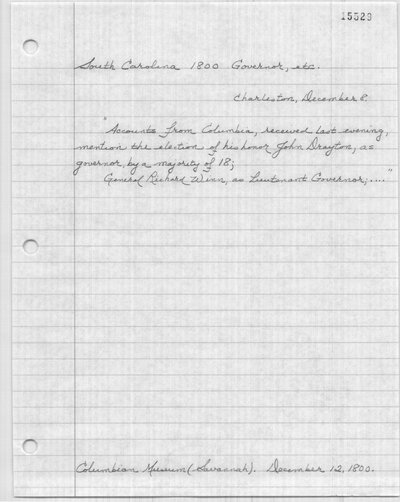 15529
South Carolina 1800 Governor, etc.
Charleston, December 8.
"Accounts from Columbia, received last evening,
mention the election of his honor John Drayton, as
governor, by a majority of 18;
General Richard Winn, as Lieutenant Governor; ...."
Columbian Museum (Savannah). December 12, 1800.